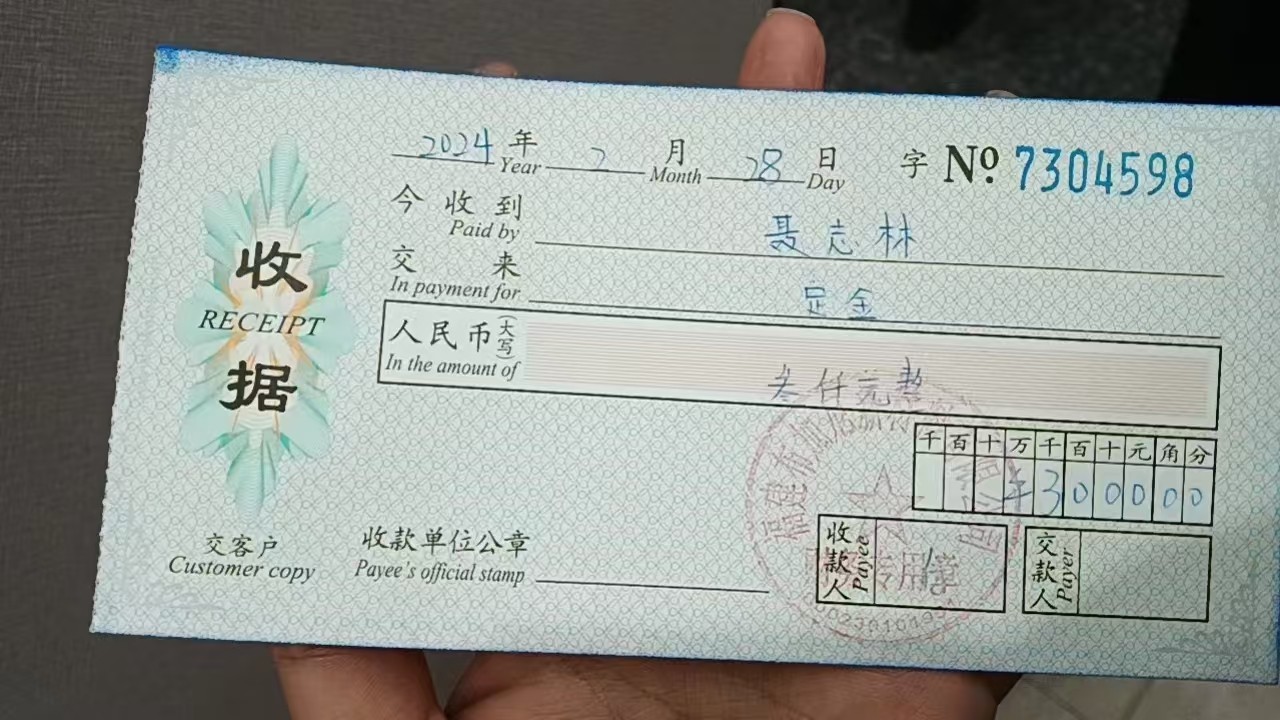 2024 年 Year 2 月 Month 28 日 Day 字 Nº 7304598
今收到 Paid by 聂志林
交来 In payment for 定金
人民币(大写) In the amount of 叁仟元整
千 百 十 万 千 百 十 元 角 分
¥ 3 0 0 0 0 0
收据
RECEIPT
交客户
Customer copy
收款单位公章
Payee's official stamp
收款人 Payee
交款人 Payer
福建
专用章